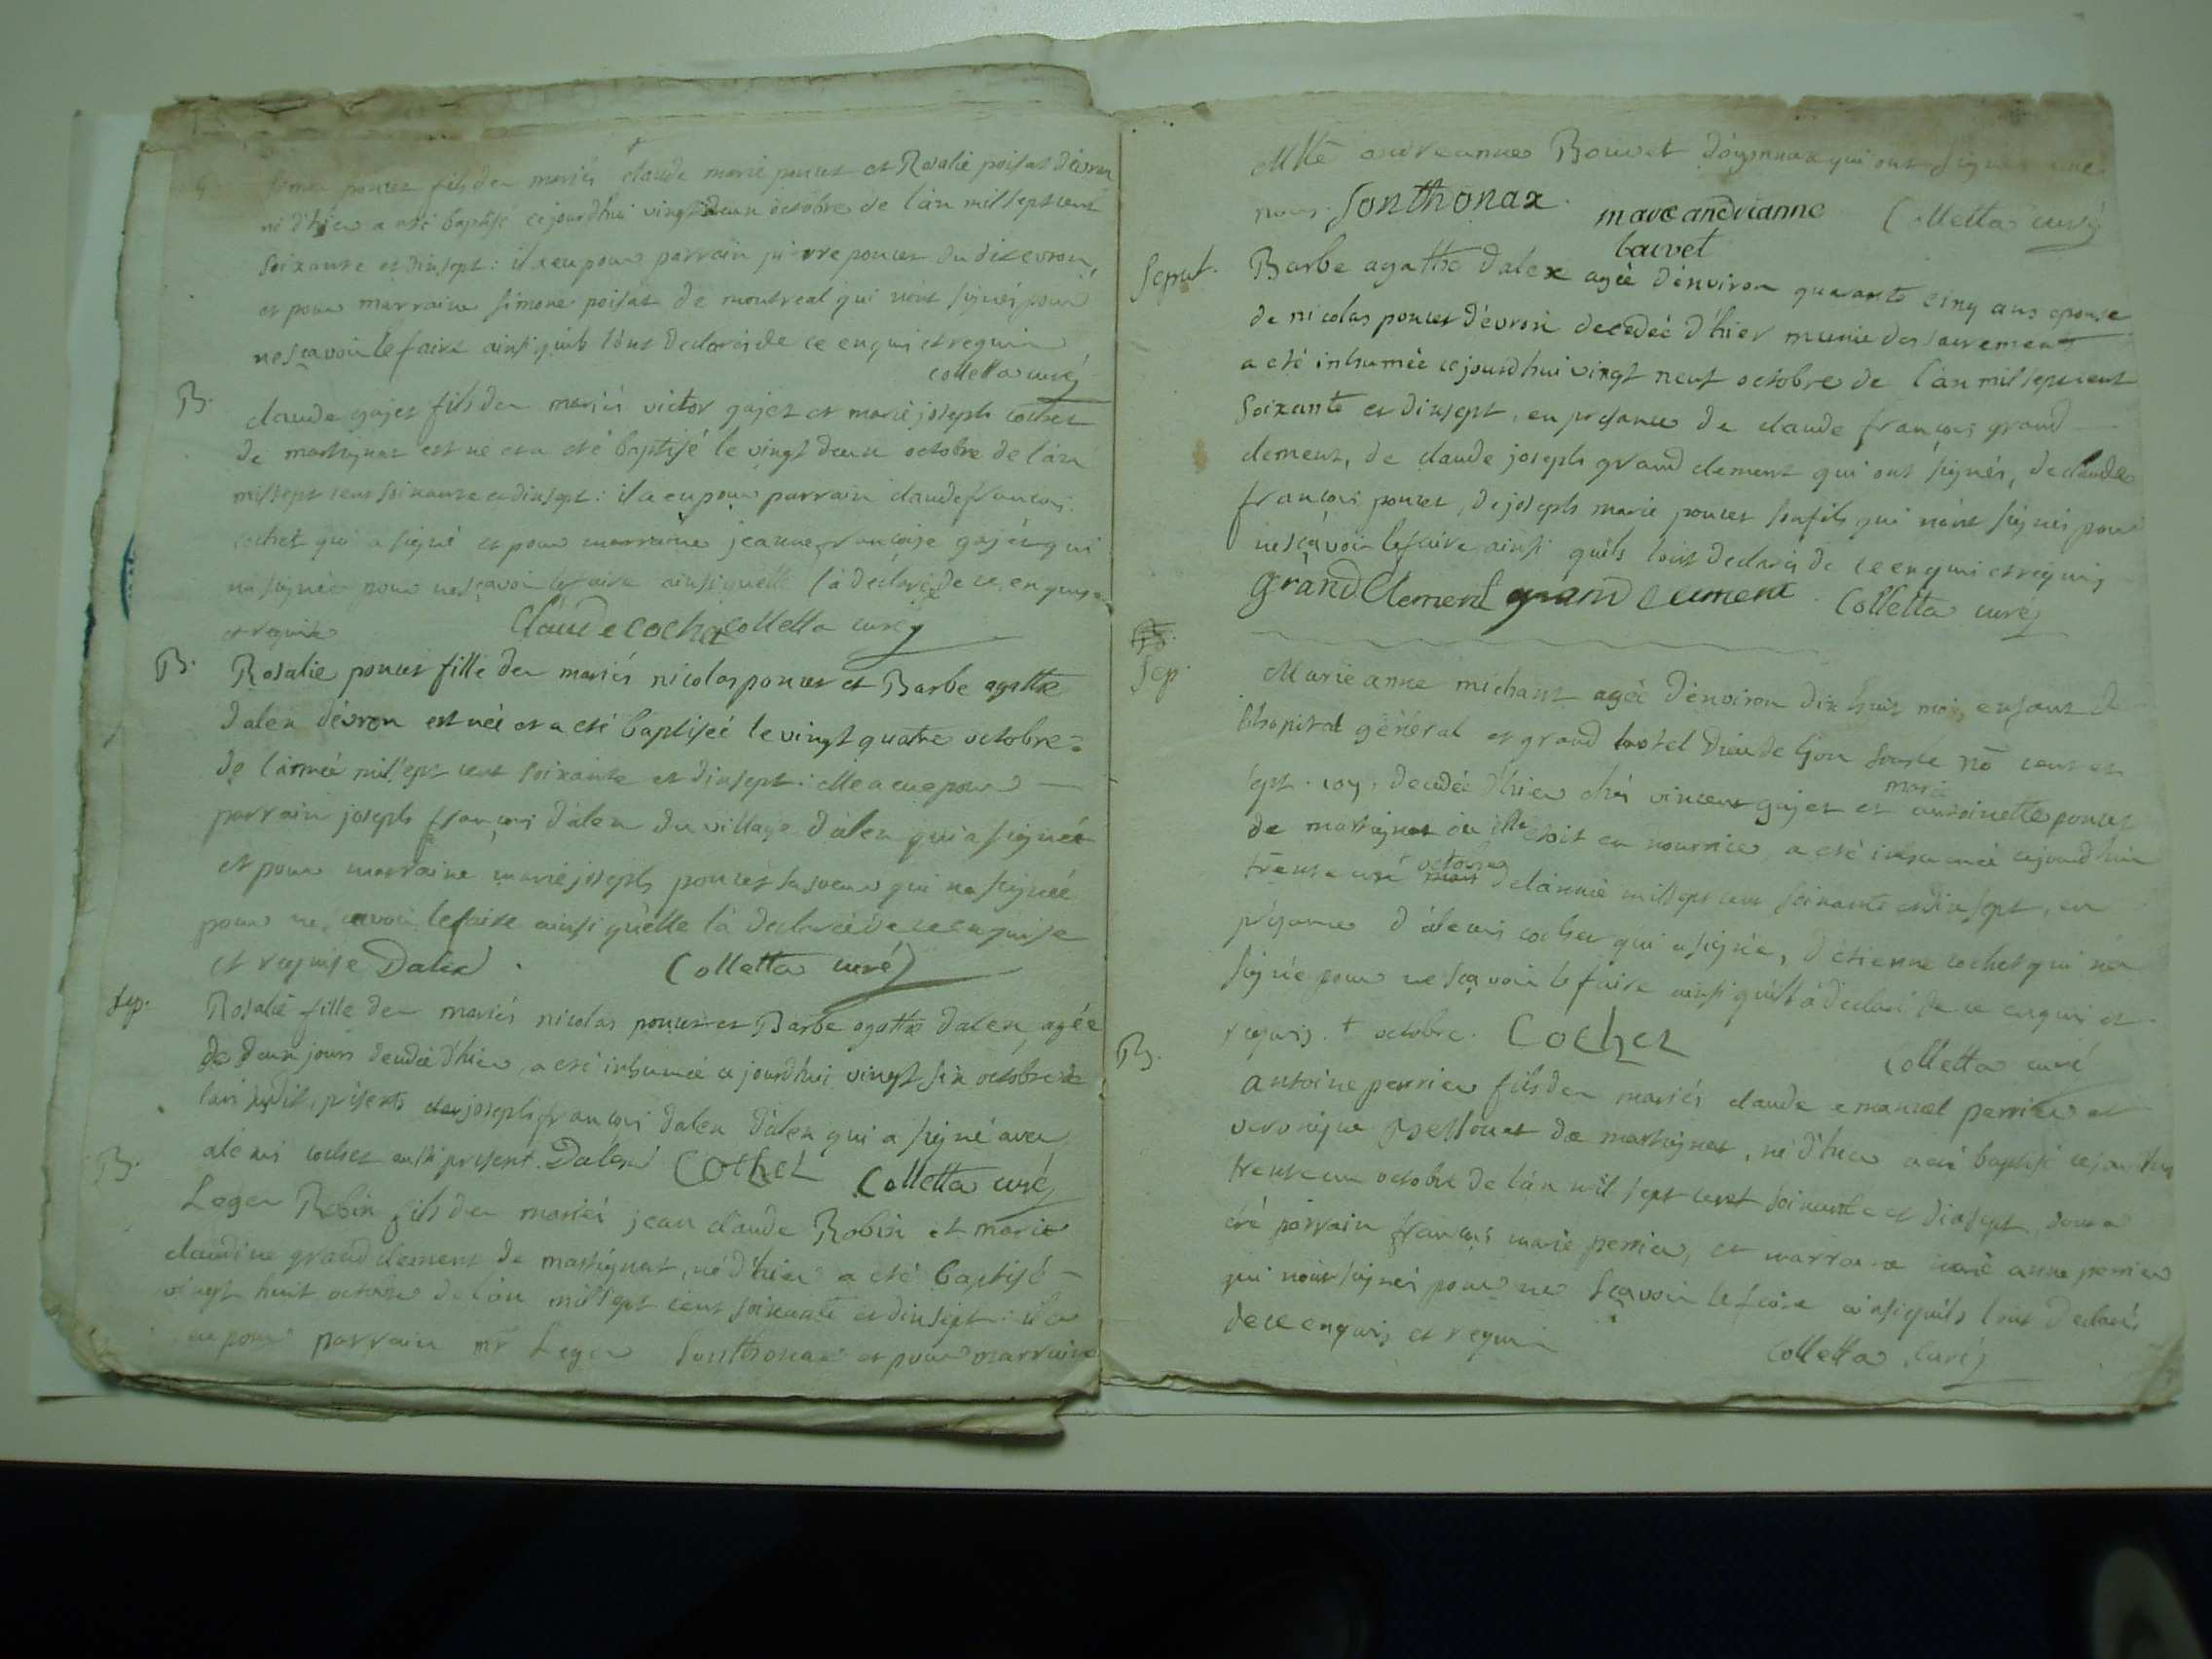 B. Simon poncet fils des mariés claude marie poncet et Rosalie poisat d'evron
né d'hier a eté baptisé cejourdhui vingt deux octobre de l'an mil sept cent
soixante et dixsept: il a eu pour parrain pierre poncet du dit evron,
et pour marraine simone poisat de montreal qui n'ont signés pour
ne sçavoir le faire ainsi quils l'ont declarés de ce enquis et requis
colletta curé
B. claude gajet fils des mariés victor gajet et marie joseph cochet
de martignat est né et a eté baptisé le vingt deux octobre de l'an
mil sept cent soixante et dixsept: il a eu pour parrain claude françois
cochet qui a signé et pour marraine jeanne françoise gajet qui
na signée pour ne sçavoir le faire ainsi quelle l'a declaré de ce enquise
et requise Claude cochet colletta curé
B. Rosalie poncet fille des mariés nicolas poncet et Barbe agathe
dalex d'évron est née et a eté baptiseé le vingt quatre octobre
de l'année mil sept cent soixante et dixsept: elle a eu pour
parrain joseph françois dalex du village d'alex qui a signé
et pour marraine marie joseph poncet sa soeur qui na signeé
pour ne scavoir le faire ainsi qu'elle l'a declareé de ce enquise
et requise Dalex. Colletta curé
sep. Rosalie fille des mariés nicolas poncet et Barbe agathe dalex, agée
de deux jours decedeé d'hier, a eté inhumeé ce jourd'hui vingt six octobre de
l'an susdit, présents joseph françois dalex d'alex qui a signé avec
alexis cochet aussi present. Dalex Cochet Colletta curé
B. Leger Robin fils des mariés jean claude Robin et marie
claudine grandclement de martignat, né d'hier a eté baptisé
vingt huit octobre de l'an mil sept cent soixante et dixsept: il a
eu pour parrain mr Leger Sonthonax et pour marraine
Mlle andreanne Bouvet d'oyonnax qui ont signés avec
nous. Sonthonax. marc andrianne Colletta curé
bauvet
Sepul. Barbe agathe dalex ageé d'environ quarante cinq ans epouse
de nicolas poncet d'évron decedeé d'hier munie des sacrements
a eté inhumeé cejourdhui vingt neuf octobre de l'an mil sept cent
soixante et dixsept, en présence de claude françois grand
clement, de claude joseph grand clement qui ont signés, de claude
françois poncet, de joseph marie poncet son fils qui n'ont signés pour
ne sçavoir le faire ainsi quils l'ont declarés de ce enquis et requis
grandClement grand clement. Colletta curé
Sep. Marie anne michaut ageé d'environ dix huit mois, enfant de
l'hopital général et grand hotel Dieu de lyon sous le no cent et
sept. 107, decedeé d'hier chés vincent gajet et marie antoinette poncet
de martignat ou elle etoit en nourrice, a eté inhumeé cejourdhui
trente un octobre de l'anneé mil sept cent soixante et dixsept, en
présence d'alexis cochet qui a signé, d'étienne cochet qui n'a
signé pour ne sçavoir le faire ainsi quil l'a declaré de ce enquis et
requis. + octobre. Cochet
colletta curé
B. antoine perrier fils des mariés claude emanuel perrier et
veronique de martignat, né d'hier a eté baptisé cejourdhui
trente un octobre de l'an mil sept cent soixante et dixsept, dont a
eté parrain françois marie perrier, et marraine marie anne perrier
qui n'ont signés pour ne sçavoir le faire ainsi quils l'ont declarés
de ce enquis et requis
Colletta curé